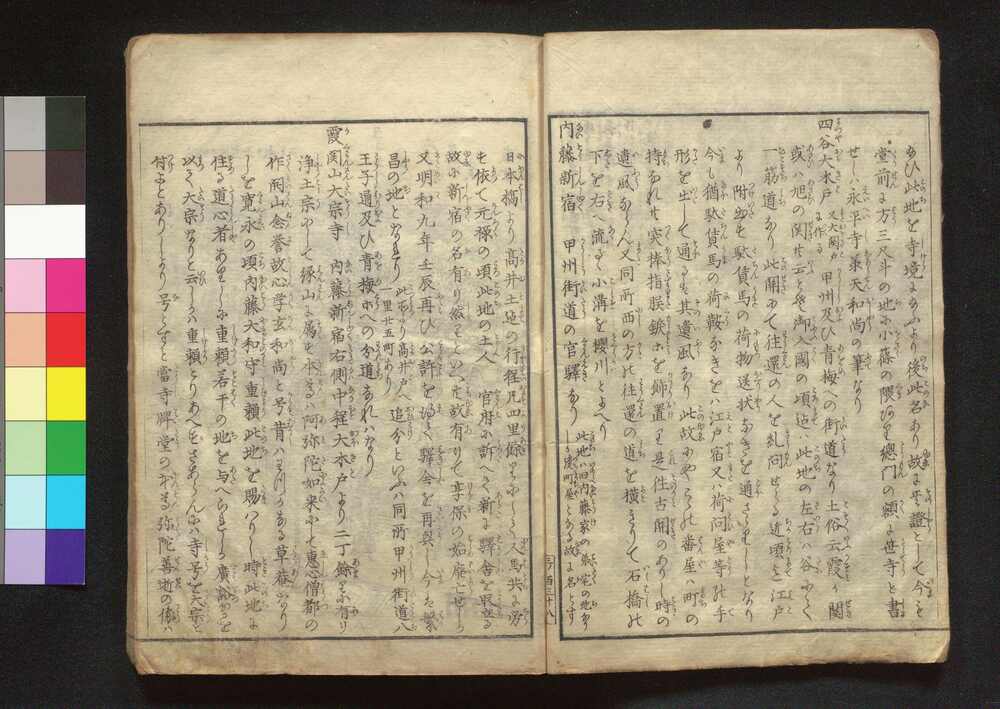 あひ此地を寺境に入より後此名あり故に其證として今も
堂前に方三尺斗の地に小篠の隈あり總門の額に世寺と書
せしハ永平寺兼天和尚の筆なり
四谷大木戸 又大関戸に作る 甲州及ひ青梅への街道なり土俗云霞か関
或ハ旭の関共云と御入國の頃迄ハ此地の左右ハ谷にて
一筋道なり此関にて往還の人を糺問せらる近頃まて江戸
より附出す駄賃馬の荷物送状なきを通さゝりしとなり
今も猶駄賃馬の荷鞍なきをハ江戸宿又ハ荷問屋等の手
形を出して通る其遺風あり此故にやこの番屋ハ町の
持なれ共突棒指股錑等を飾置り是往古関のありし時の
遺風ならん又同所西の方の往還の道を横きりて石橋の
下を右へ流るゝ小溝を櫻川とよへり
内藤新宿 甲州街道の官驛なり 此地ハ旧内藤家の第宅の地なり しか後町屋となる故に名とす
日本橋より高井土迄の行程凡四里余にして人馬共に労
す依て元禄の頃此地の土人 官府に訴へて新に驛舎を取立る
故に新宿の名有り然るといへとも故有りて享保の始廃亡せしか
又明和九年壬辰再ひ公許を得て驛舎を再興し今ハ繁
昌の地となれり 此所より高井戸へ 里廿五町あり 追分といふハ同所甲州街道八
王子道及ひ青梅等への分道なれハなり
霞関山大宗寺 内藤新宿右側中程大木戸より二丁余に有り
浄土宗にして縁山に属す本尊ハ阿弥陀如来にて恵心僧都の
作開山念誉故心学玄和尚と号す昔ハ草菴なり
しを寛永の頃内藤大和守重頼此地を賜ハりし時此地に
住る道心者ありしに重頼若干の地を与へられし
以て大宗なりと云しハ重頼とりあへすさあらんにハ寺号を大宗と
付よとありしより号とすと當寺禅堂の本尊弥陀善逝の像ハ